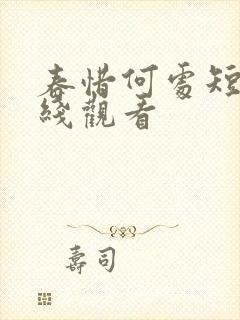 春惜何處短
綫觀看
壽司